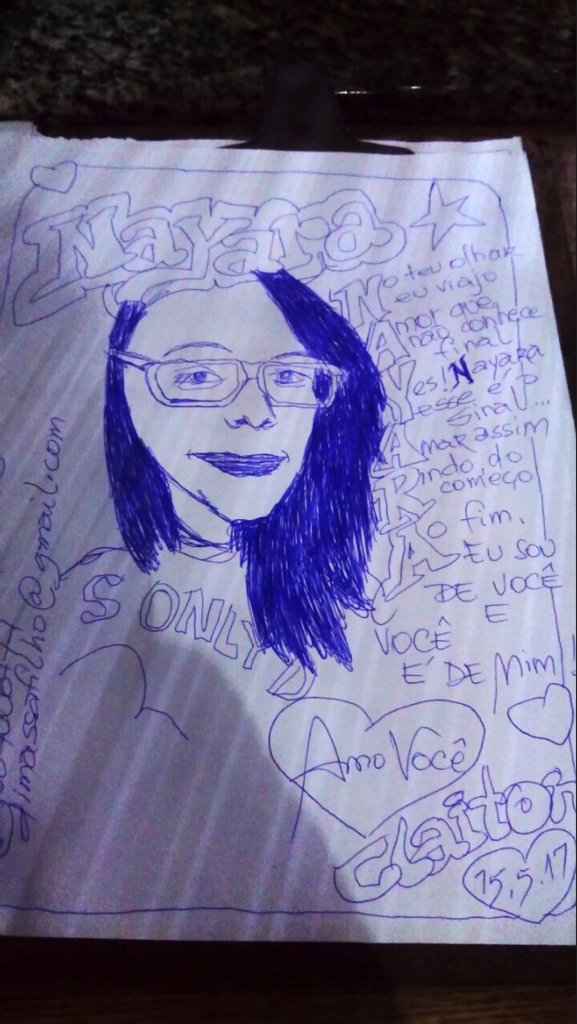 Nayara
No teu olhar
eu viajo
Amor que
não conhece
final
Yes! Nayara
esse é o
sinal...
Amar assim
Rindo do
começo
Ao fim.
EU SOU
DE VOCÊ
E
VOCÊ
E' DE Mim!
S ONLY
Amo Você
Claiton
15.5.17